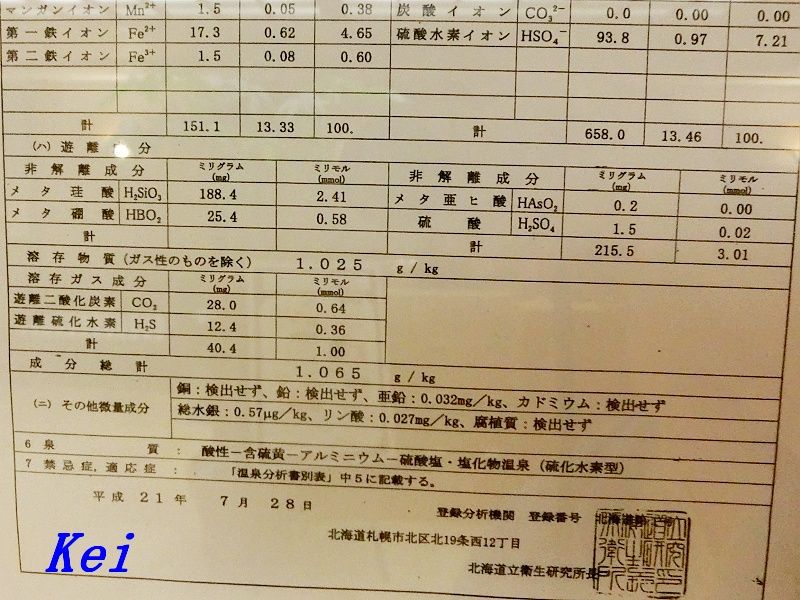 マンガンイオン Mn²⁺ 1.5 0.05 0.38 炭酸イオン CO₃²⁻ 0.0 0.00 0.00
第一鉄イオン Fe²⁺ 17.3 0.62 4.65 硫酸水素イオン HSO₄⁻ 93.8 0.97 7.21
第二鉄イオン Fe³⁺ 1.5 0.08 0.60
計 151.1 13.33 100. 計 658.0 13.46 100.
(ハ) 遊離成分
非解離成分 ミリグラム (mg) ミリモル (mmol) 非解離成分 ミリグラム (mg) ミリモル (mmol)
メタ珪酸 H₂SiO₃ 188.4 2.41 メタ亜ヒ酸 HAsO₂ 0.2 0.00
メタ硼酸 HBO₂ 25.4 0.58 硫酸 H₂SO₄ 1.5 0.02
計 計 215.5 3.01
溶存物質(ガス性のものを除く) 1.025 g/kg
溶存ガス成分 ミリグラム (mg) ミリモル (mmol)
遊離二酸化炭素 CO₂ 28.0 0.64
遊離硫化水素 H₂S 12.4 0.36
計 40.4 1.00
成分総計 1.065 g/kg
(ニ) その他微量成分 銅:検出せず、鉛:検出せず、亜鉛:0.032mg/kg、カドミウム:検出せず
総水銀:0.57μg/kg、リン酸:0.027mg/kg、腐植質:検出せず
6 泉質: 酸性-含硫黄-アルミニウム-硫酸塩・塩化物温泉(硫化水素型)
7 禁忌症,適応症: 「温泉分析書別表」中5に記載する。
平成21年7月28日
登録分析機関 登録番号 北海道
北海道札幌市北区北19条西12丁目
北海道立衛生研究所長
Kei